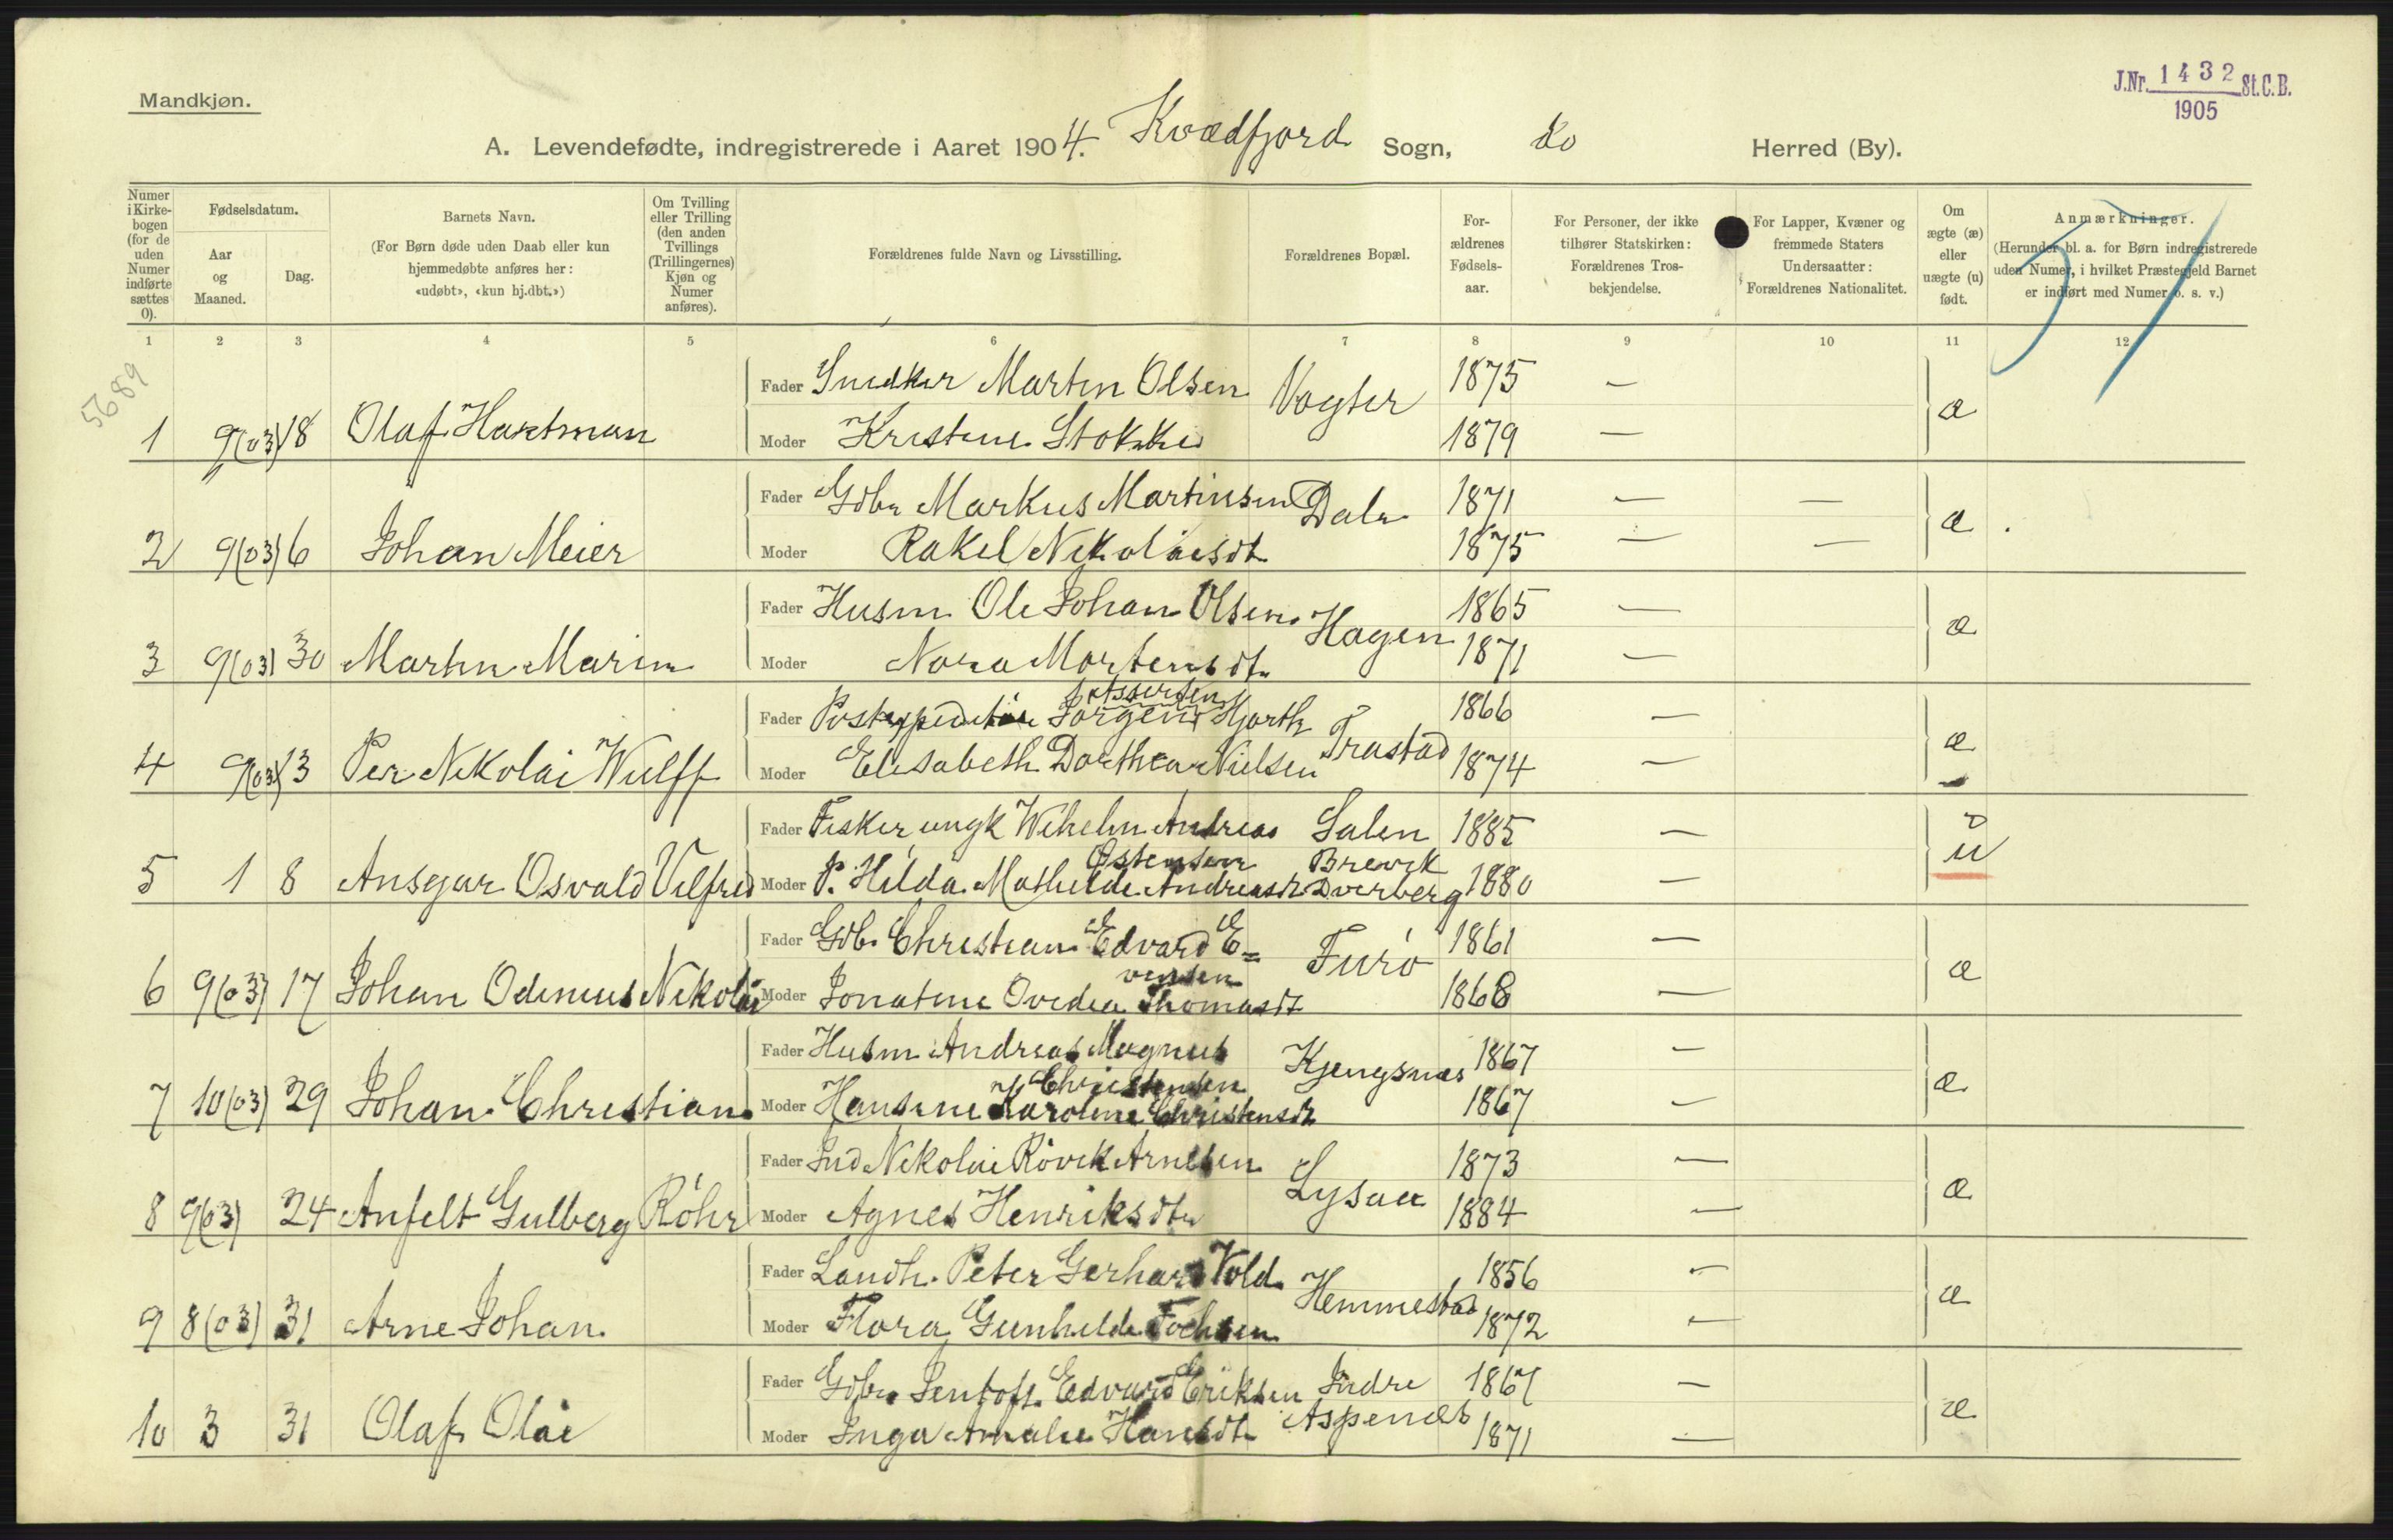 Mandkjøn.
J.Nr. 1432 St.C.B.
1905
A. Levendefødte, indregistrerede i Aaret 1904. Kvædfjord Sogn, do Herred (By).
Numer i Kirkebogen (for de uden Numer indførte sættes 0).
Fødselsdatum.
Aar og Maaned.
Dag.
Barnets Navn.
(For Børn døde uden Daab eller kun hjemmedøbte anføres her: «udøbt», «kun hj.dbt.»)
Om Tvilling eller Trilling (den anden Tvillings (Trillingernes) Kjøn og Numer anføres).
Forældrenes fulde Navn og Livsstilling.
Forældrenes Bopæl.
For-ældrenes Fødsels-aar.
For Personer, der ikke tilhører Statskirken: Forældrenes Tros-bekjendelse.
For Lapper, Kvæner og fremmede Staters Undersaatter: Forældrenes Nationalitet.
Om ægte (æ) eller uægte (u) født.
Anmærkninger.
(Herunder bl. a. for Børn indregistrerede uden Numer, i hvilket Præstegjeld Barnet er indført med Numer o. s. v.)
1 2 3 4 5 6 7 8 9 10 11 12
5689
Fader Snedker Martin Olsen Vogter 1875 —
1 9(03) 18 Olaf Hartman Moder Kristine Stokke 1879 — æ
Fader Gdbr Markus Martinsen Dale 1871 — —
2 9(03) 6 Johan Meier Moder Rakel Nikolaisdt 1875 — — æ
Fader Husm Ole Johan Olsen Hagen 1865 —
3 9(03) 30 Martin Marin Moder Nora Mortensdt. 1871 — æ
Assersen
Fader Postexpeditør Jørgen Hjorth Trastad 1866 —
4 9(03) 13 Per Nikolai Wulff Moder Elisabeth Dorthea Nielsen 1874 — æ
Fader Fisker ungk Wilhelm Andreas Salen 1885 —
Østensen Brevik
5 1 8 Ansgar Osvald Vilfred Moder P. Hilda Mathilde Andreasdt Dverberg 1880 — u
Fader Gdb. Christian Edvard E= Furø 1861 —
vensen
6 9(03) 17 Johan Odinius Nikolai Moder Jonatine Ovedia Thomasdt 1868 — æ
Fader Husm Andreas Magnus Kjengsnæs 1867 —
Christensen
7 10(03) 29 Johan Christian Moder Hansine Karoline Christensdt 1867 — æ
Fader Ind Nikolai Rövik Arnesen Lysaa 1873 —
8 9(03) 24 Anfelt Gulberg Röhr Moder Agnes Henriksdtr 1884 — æ
Fader Landh. Peter Gerhard Vold Hemmestad 1856 —
9 8(03) 31 Arne Johan Moder Flora Gunhilde Fochsen 1872 — æ
Fader Gdbr Jentoft Edvard Eriksen Indre 1867 —
10 3 31 Olaf Olai Moder Inga Amalie Hansdt Aspenes 1871 — æ